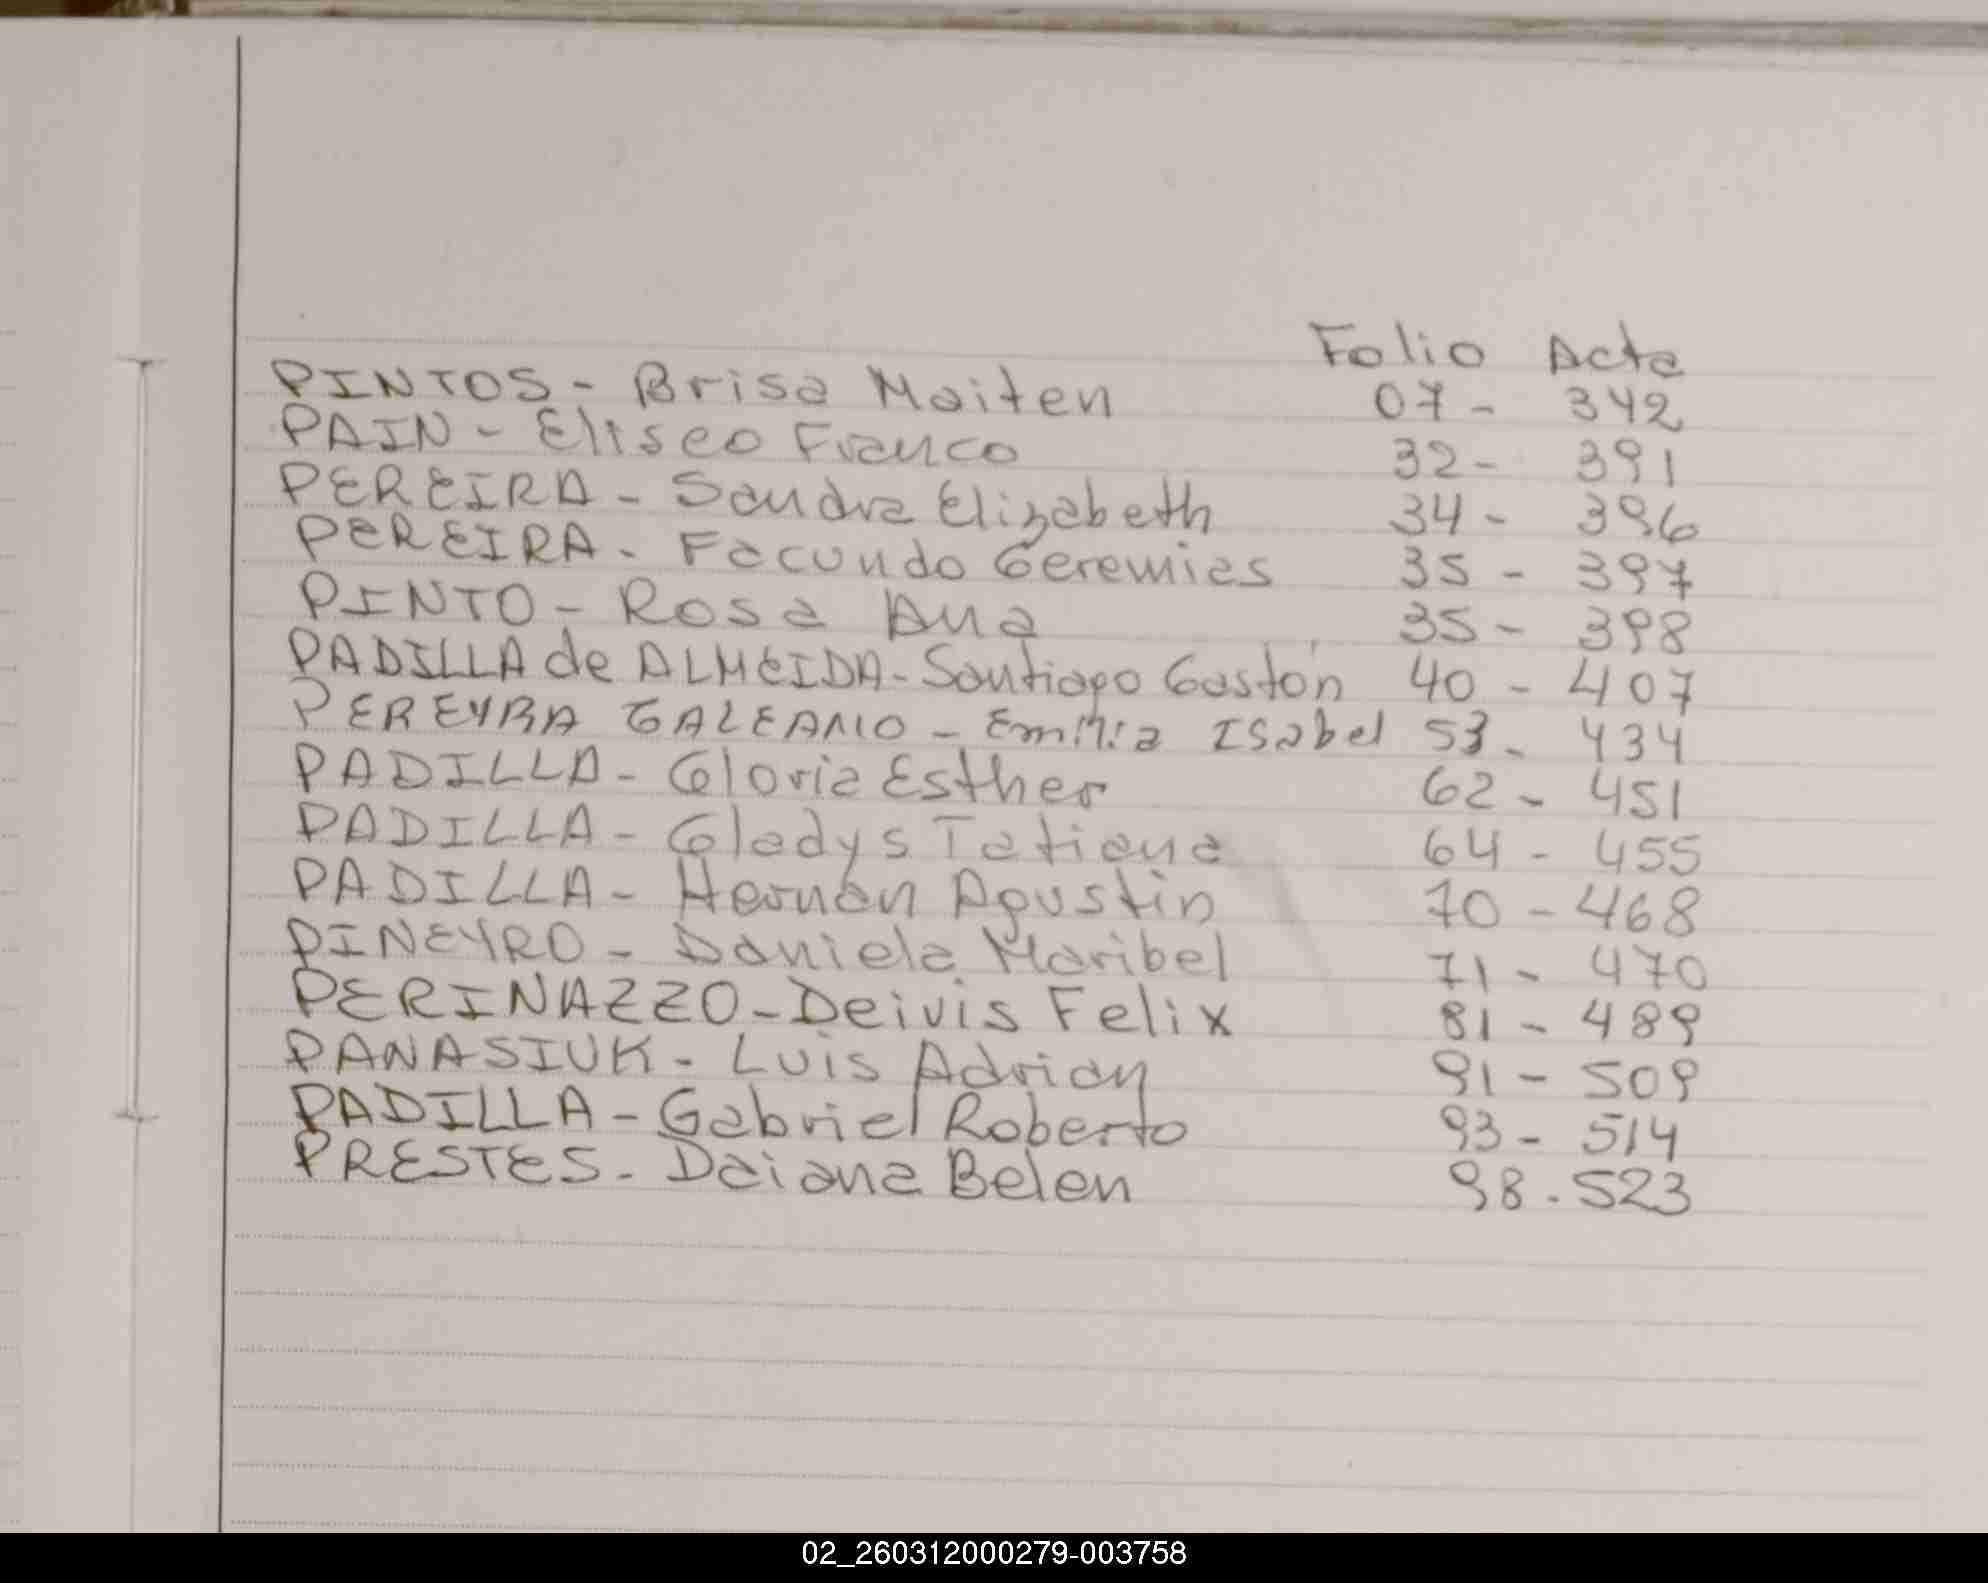 Folio Acta
PINTOS - Brisa Maiten 07 - 342
PAIN - Eliseo Franco 32 - 391
PEREIRA - Sandra Elizabeth 34 - 396
PEREIRA - Facundo Geremias 35 - 397
PINTO - Rosa Ana 35 - 398
PADILLA de ALMEIDA - Santiago Gastón 40 - 407
PEREYRA GALEANO - Emilia Isabel 53 - 434
PADILLA - Gloria Esther 62 - 451
PADILLA - Gladys Tatiana 64 - 455
PADILLA - Hernán Agustin 70 - 468
PINEYRO - Daniela Maribel 71 - 470
PERINAZZO - Deivis Felix 81 - 489
PANASIUK - Luis Adrian 91 - 509
PADILLA - Gabriel Roberto 93 - 514
PRESTES - Daiana Belen 98 - 523
02_260312000279-003758